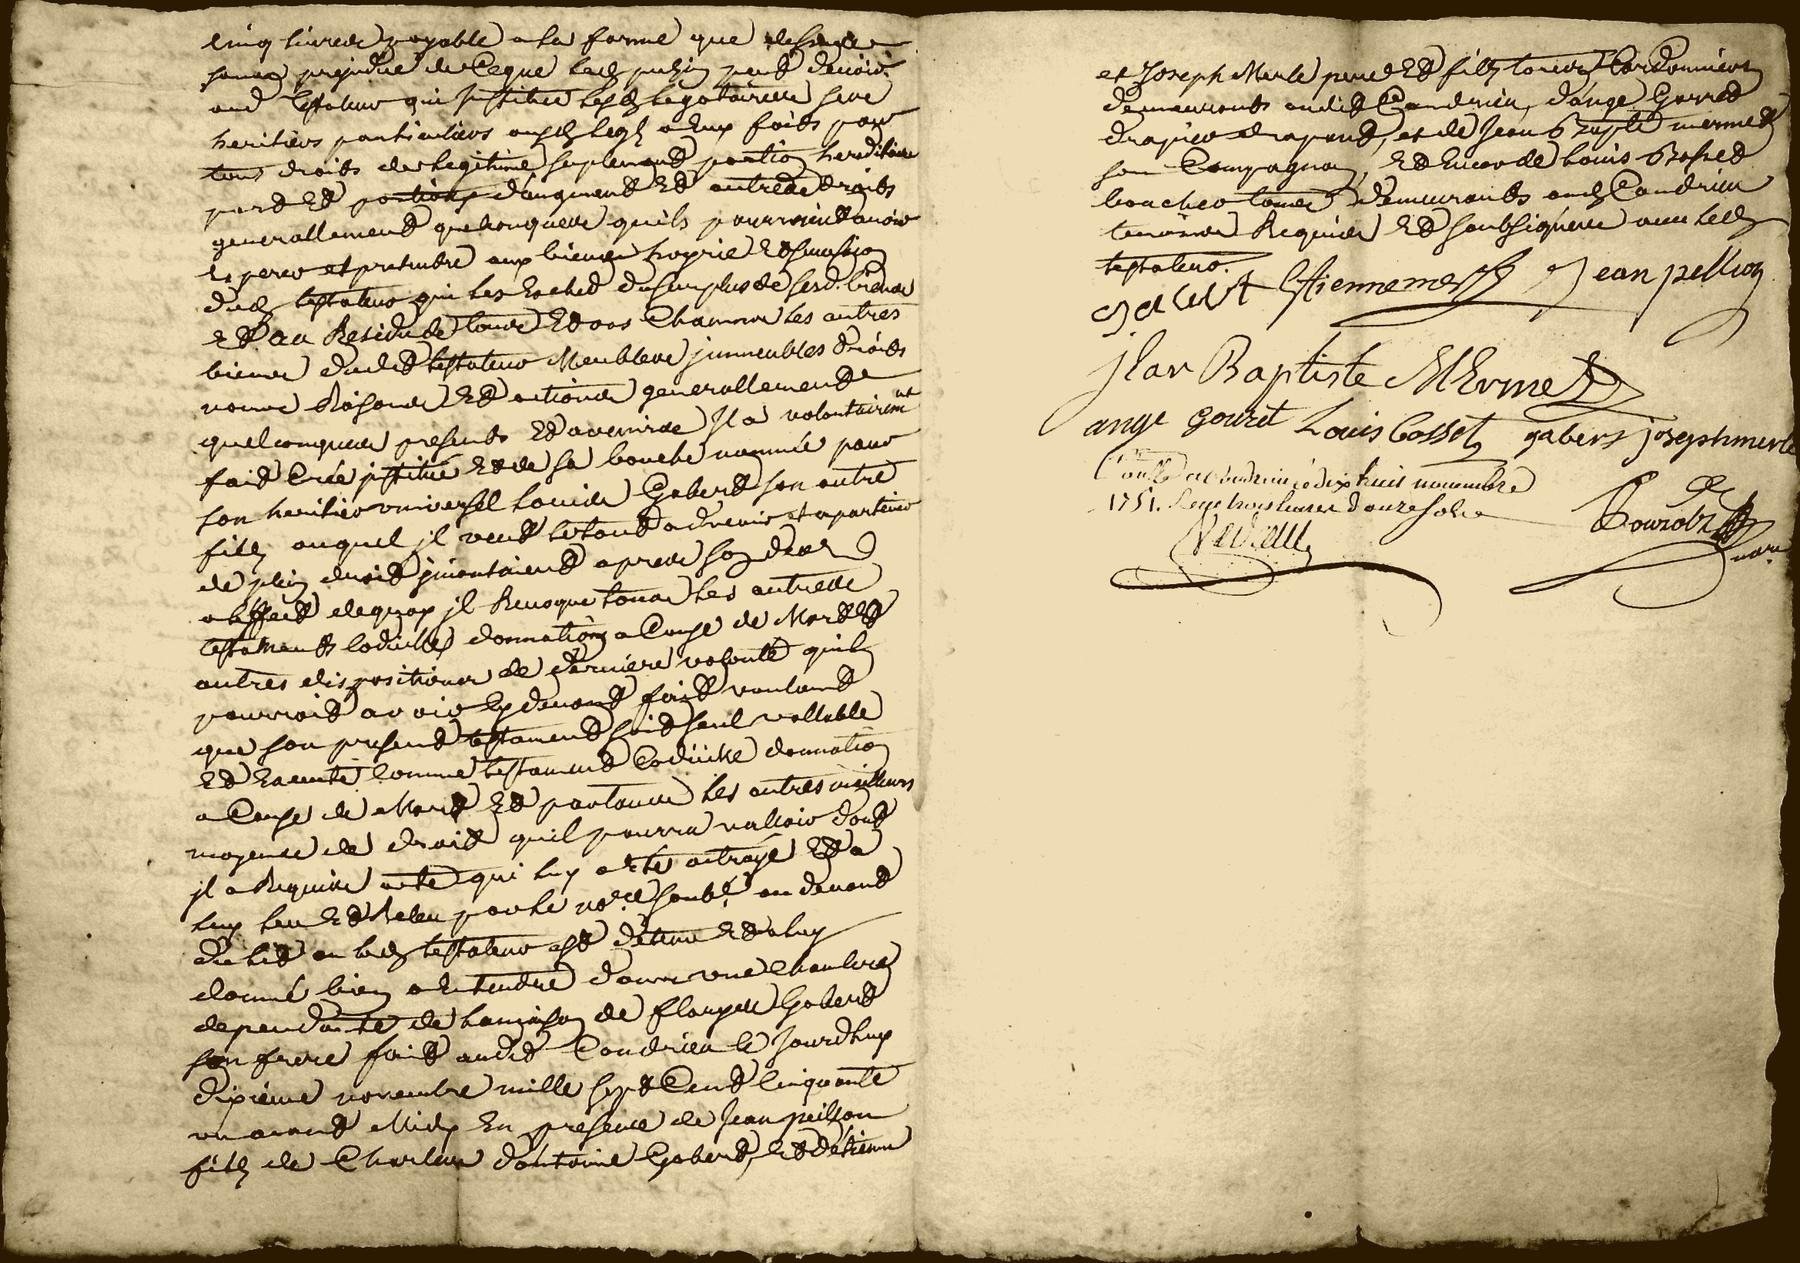 cinq livres payable a la forme que dessus
sans prejudice de ce que led. peut devoir
aud testateur qui jnstitue lesd. legataires ses
heritiers particuliers auxd. legs a eux faits pour
tous droits de legitime suplement portion hereditaire
part Et portions d'augment Et autres droits
generallement quelconques quils pourroient avoir
Esperer et pretendre aux biens hoyrie Et succession
dud testateur qui les au surplus de sesd. biens
Et au Residu de tous Et uns chacuns les autres
biens dudit testateur Meubles jmmeubles droits
noms Raisons Et actions generallement
quelconques presents Et avenirs Il a volontairemnt
fait Créé jnstitué Et de sa bouche nommé pour
son heritier universel Louis Gabert son autre
fils auquel jl veut le tout advenir et apartenir
de plein droit jncontinent apres son deces
a leffect dequoy jl Revoque tous les autres
testaments Codicilles donnations a Cause de Mort Et
autres dispositions de derniere volonté quil
pourroit avoir cy devant fait voulant
que son present testament soit seul vallable
Et Executé comme testament Codicille donnation
a Cause de Mort Et par tous les autres meilleurs
moyens de droit quil pourra valloir dont
jl a Requis acte qui luy a Eté octroyé Et a
luy leu Et Releu par le nore. soubé. au devant
du lit ou led. testateur est détenu Et a luy
donné bien a Entendre dans une chambre
dependante de la maison de Gabert
son frere fait audit Condrieu le Jourdhuy
dixième novembre mille sept Cent Cinquante
un avant Midy En presence de Jean peillon
fils de Charles d'antoine Gabert, Et d'étienne
et Joseph Merle pere Et fils tous Cordonniers
demeurants audit Condrieu, d'ange Gouret
drapier drapant, et de Jean Baptte mermet
son Compagnon, Et Encor de Louis Bosset
boucher tous demeurants aud. Condrieu
temoins Requis Et soubsignés avec led.
testateur.
Etienne merle Jean pellion
jean Baptiste MErmet
ange gouret Louis Cosset gabert josephmerle
Conllé a Condrieu le dix huit novembre
1751. Reçu trois livres douze sols